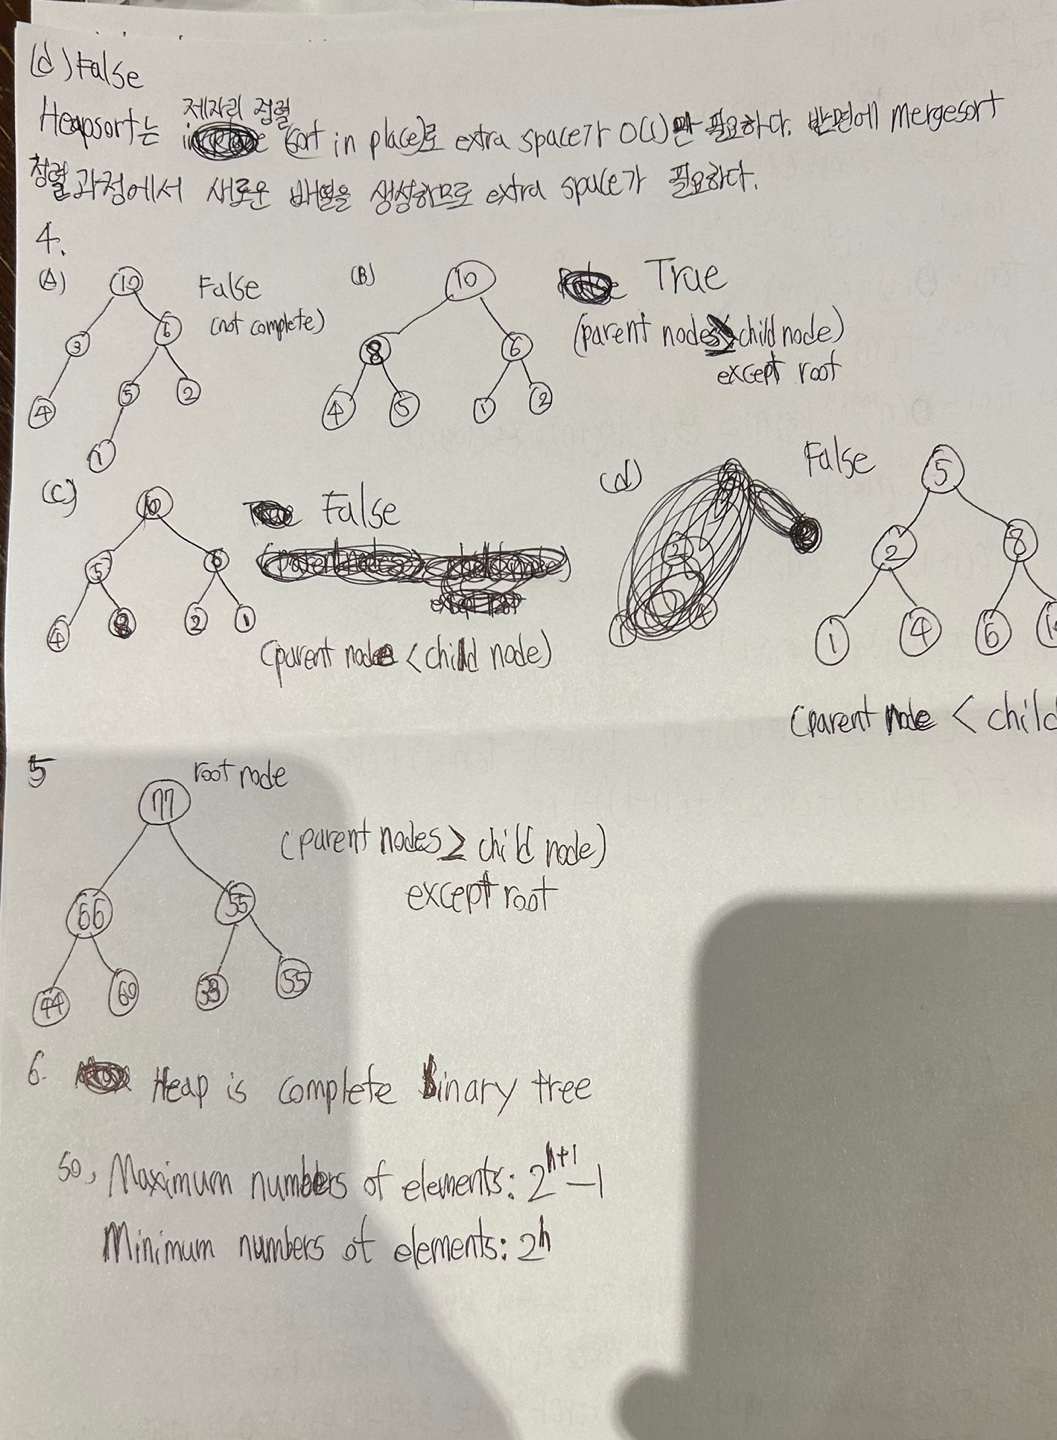 (d) False
Heapsort는 제자리 정렬 (sort in place)로 extra space가 O(1)만 필요하다. 반면에 mergesort
정렬 과정에서 새로운 배열을 생성하므로 extra space가 필요하다.
4.
(A) False
(not complete)
10
3 6
4 5 2
1
(B) True
(parent nodes ≥ child node)
except root
10
8 6
4 5 1 2
(C) False
(parent node < child node)
10
5 6
4 8 2 1
(d) False
5
2 8
1 4 6
(parent node < child
5
root node
77
66 55
44 60 33 55
(parent nodes ≥ child node)
except root
6. Heap is complete binary tree
so, Maximum numbers of elements: 2^h+1 - 1
Minimum numbers of elements: 2^h